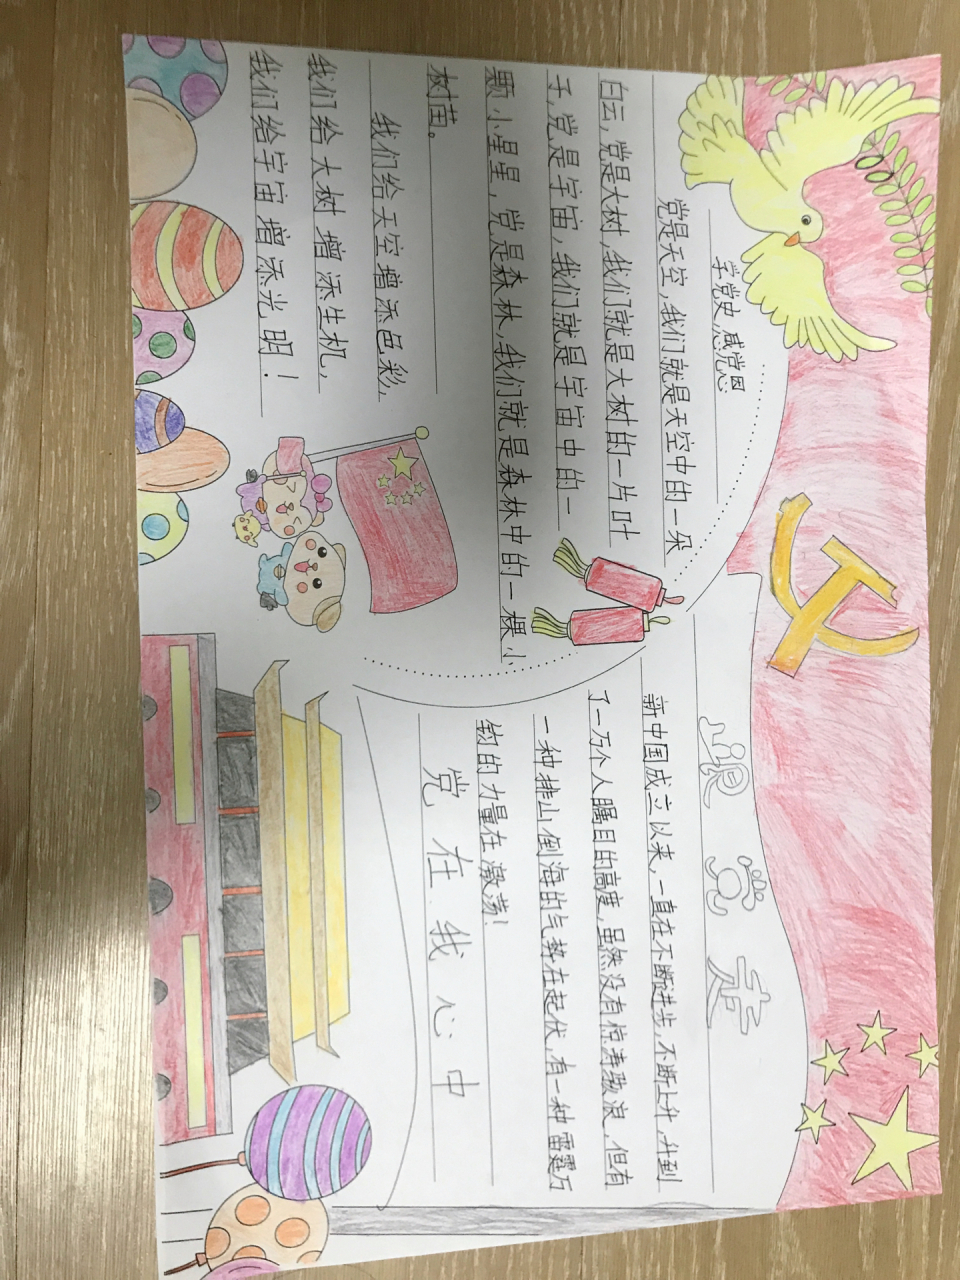 学党史,感党恩
党是天空,我们就是天空中的一朵
白云,党是大树,我们就是大树的一片叶
子,党是宇宙,我们就是宇宙中的一
颗小星星,党是森林,我们就是森林中的一棵小
树苗。
我们给天空增添色彩,
我们给大树增添生机,
我们给宇宙增添光明!
跟党走
新中国成立以来,一直在不断进步,不断上升,升到
了一万个人瞩目的高度,虽然没有惊涛骇浪,但有
一种排山倒海的气势在起伏,有一种雷霆万
钧的力量在激荡!
党在我心中